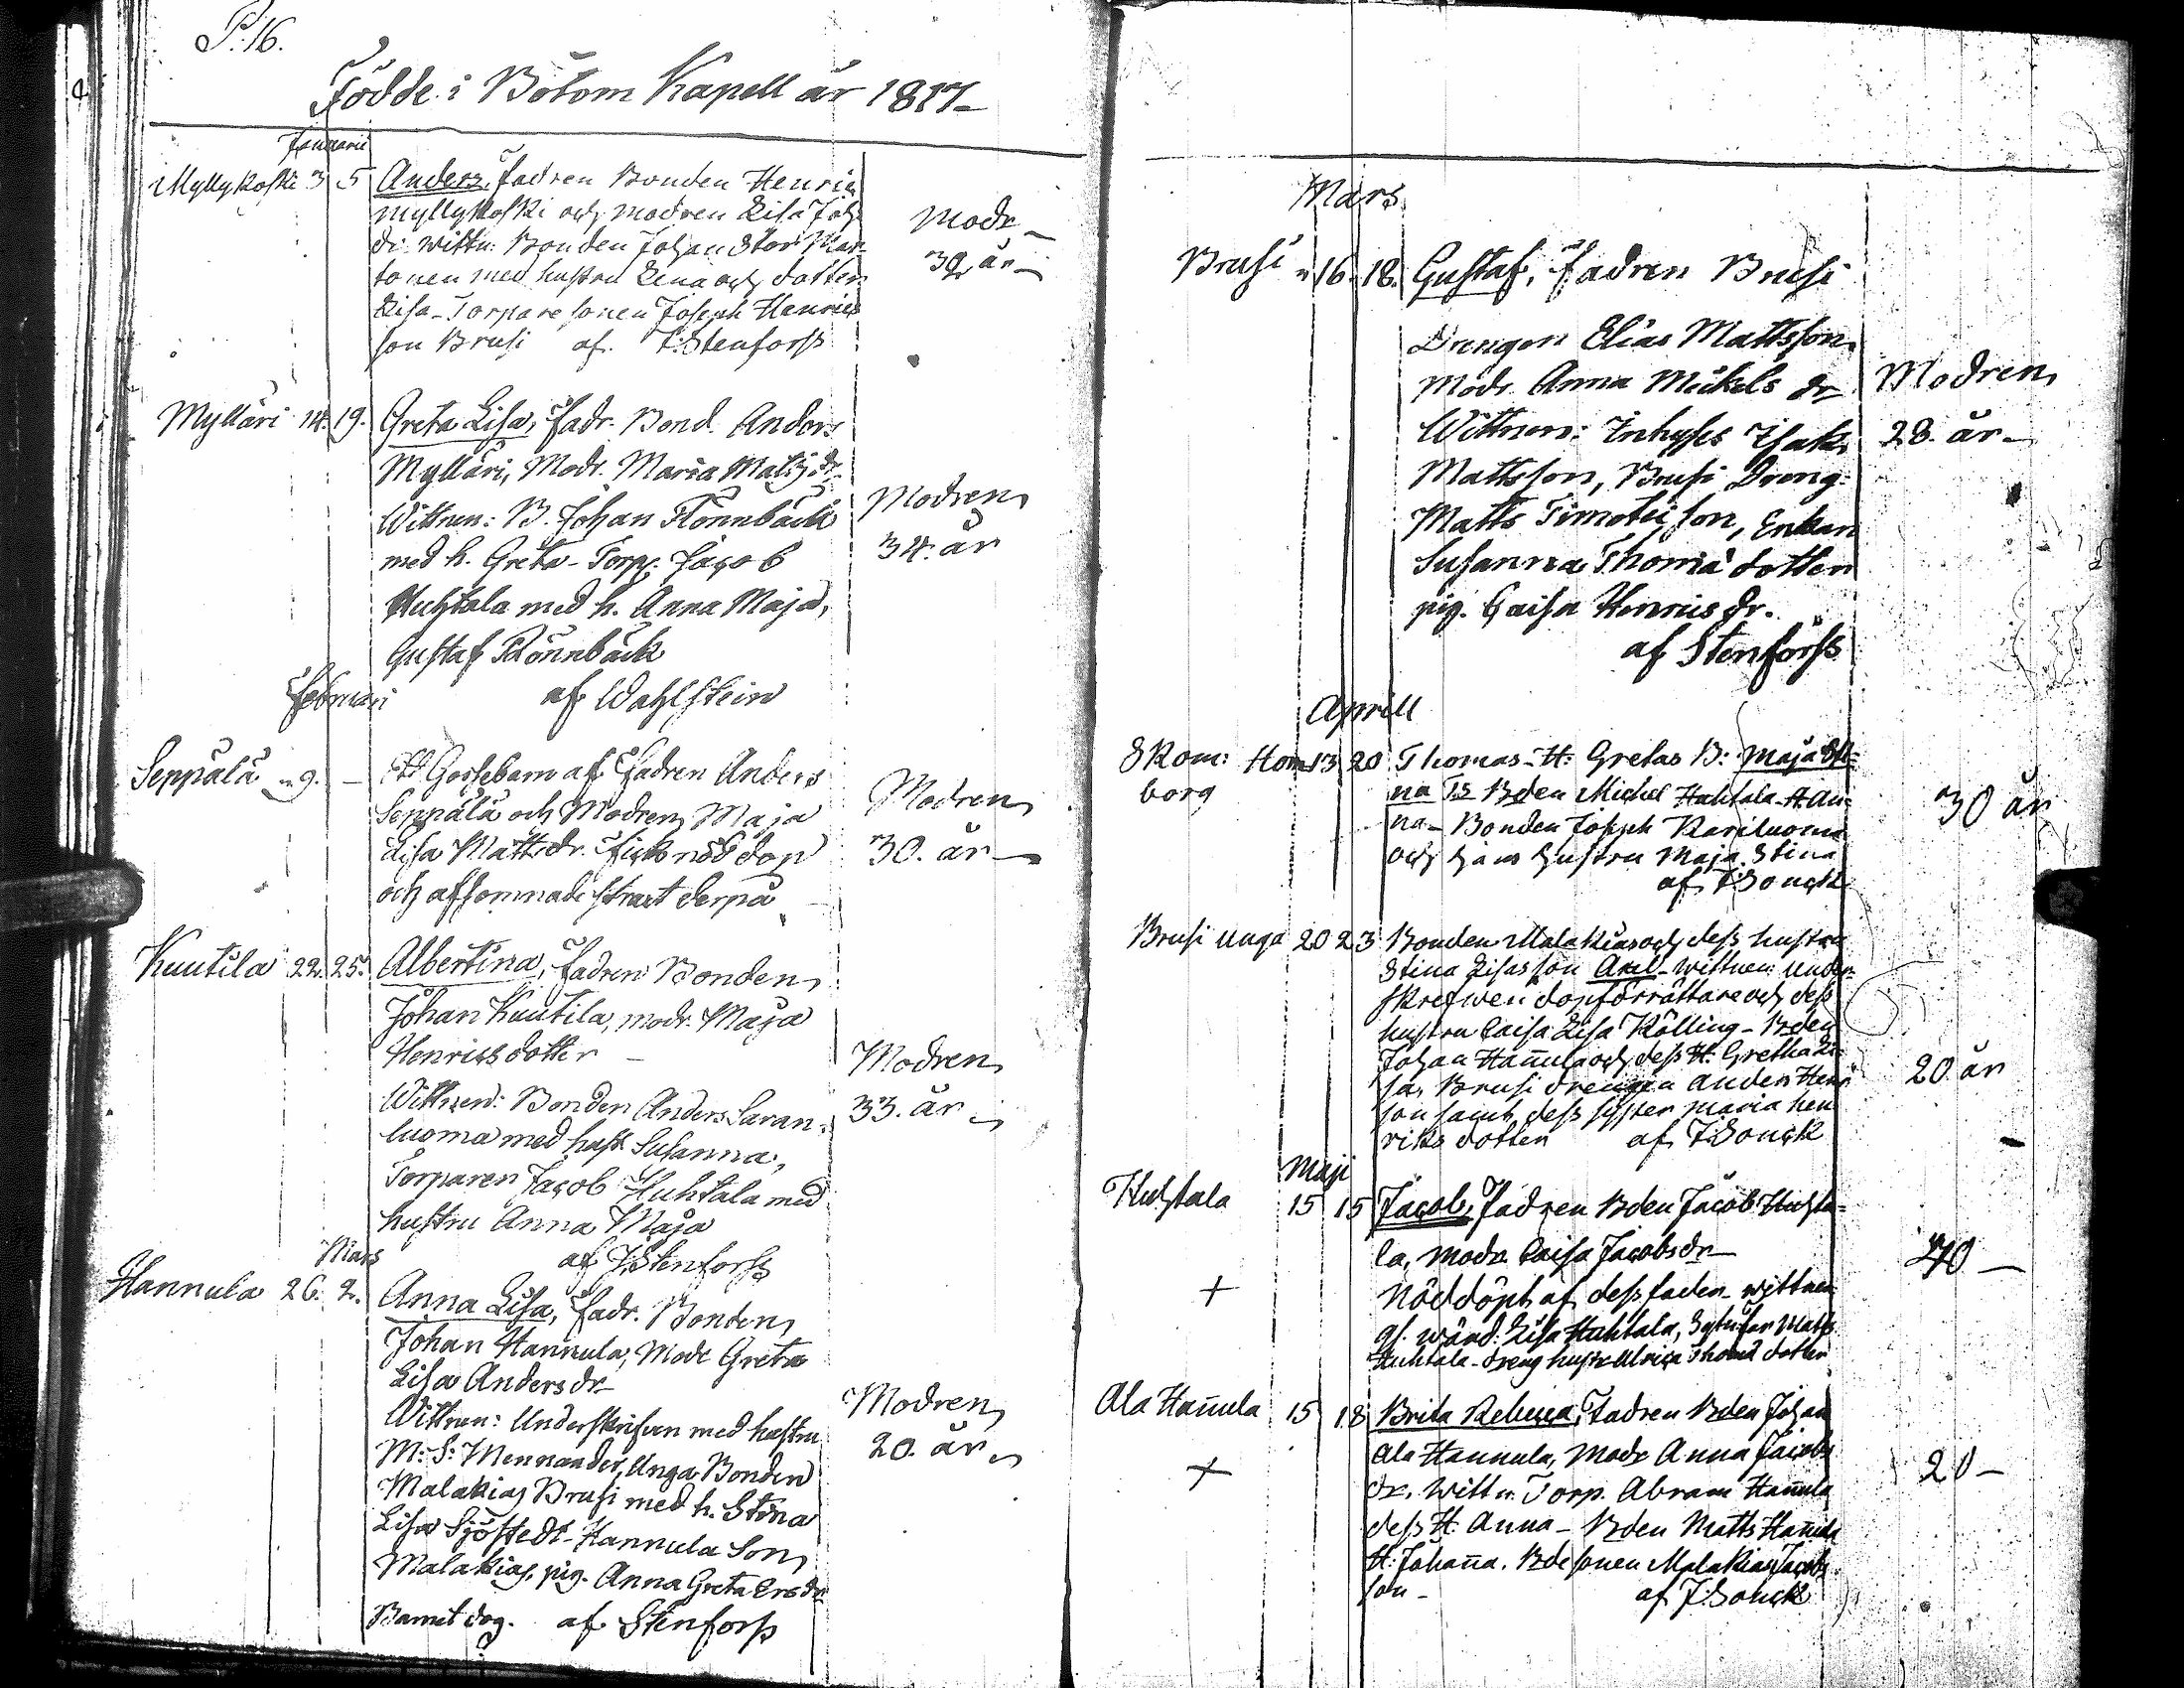 P. 16.
Födde i Bötom Kapell år 1817
Januarii
Myllykoski 3 5 Anders, fadren Bonden Henric
Myllykoski och modren Lisa Joh
dr. wittn: Bonden Johan Stor Mar-
tonen med hustru Lena och dotter
Lisa - Torpare sonen Joseph Henrics
son Brusi af Stenforss
Modr
39 år
Mylläri 14. 19. Greta Lisa, Fadr. Bond. Anders
Mylläri, Modr. Maria Matsdr.
Wittnen: B. Johan Rönnbäck
med h. Greta - Torp. Jacob
Huhtala med h. Anna Maja,
Gustaf Rönnbäck
af Wahlstein
Modren
34. år
Februari
Seppälä 9. — Ett Gossebarn af Fadren Anders
Seppälä och Modren Maja
Lisa Mattsdr. fick nöd dop
och afsomnade strax derpå
Modren
30. år
Kuutila 22. 25. Albertina, fadren Bonden
Johan Kuutila, modr. Maja
Henricsdotter
Wittnen: Bonden Anders Savan-
luoma med hust. Susanna,
Torparen Jacob Huhtala med
hustru Anna Maja
af Stenforss
Modren
33. år
Mars
Hannula 26. 2. Anna Lisa, fadr. Bonden
Johan Hannula, Modr Greta
Lisa Andersdr
Wittnen: Underskrifven med hustru
M: S: Mennander, Unga Bonden
Malakias Brusi med h. Stina
Lisa Sjöstedt - Hannula Son
Malakias, pig. Anna Greta Ersdr
Barnet dog. af Stenforss
Modren
20. år
Mars
Brusi 16. 18. Gustaf, Fadren Brusi
Drengen Elias Mattsson
Modr Anna Mickels dr
Wittnen: Inhyses Isak
Mattsson, Brusi Dreng
Matts Timoteison, Enkan
Susanna Thomä dotter
pig. Caisa Henrics dr.
af Stenforss
Modren
28. år
Aprill
Skom: Hom 13 20 Thomas - H: Gretas B: Maja Sti-
borg
na Bden Michel Huhtala H. An-
na - Bonden Joseph Kariluoma
och hans hustru Maja Stina
af Sonck
30 år
Brusi unga 20 23 Bonden Malakias och dess hustru
Stina Lisas son Axel - wittnen under-
skrefwen dopförrättare och dess
hustru Caisa Lisa Kölling - Bden
Johan Hannula och dess H: Gretha Li-
sa, Brusi drengen Anders Henr
son samt dess syster Maria hen
riks dotter af Sonck
20 år
Maji
Huhtala 15 15 Jacob, fadren Bden Jacob Huhta-
la, modr Caisa Jacobsdr
Nöddöpt af dess fader - wittnen
Lisa Huhtala, Matts
Huhtala - dreng hustr Ulrica Thomä dotter
+
40
Ala Hannula 15 18 Brita Rebecca, Fadren Bden Johan
Ala Hannula, Modr Anna Jacobs
dr. Wittn. Torp. Abram Hannula
dess H: Anna - Bden Matts Hannula
H: Johanna. Bdesonen Malakias Jacobs
son - af Sonck
+
20